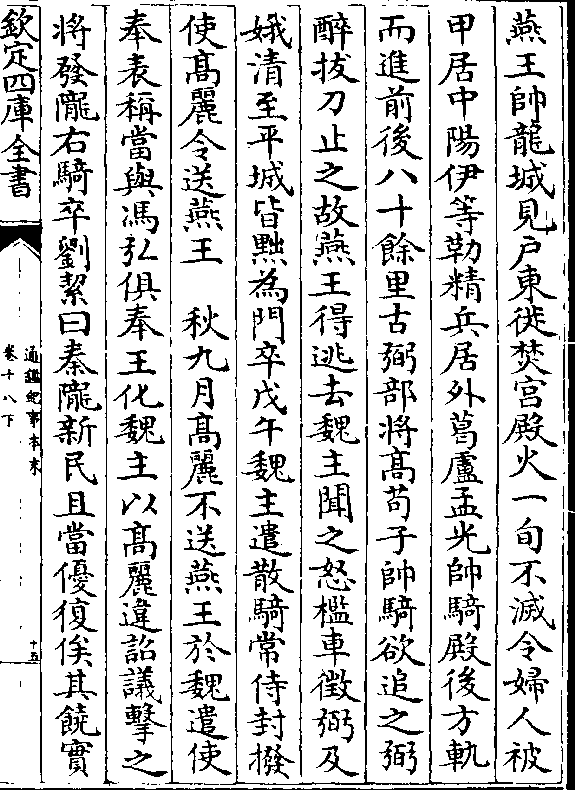 燕王帥龍城見戶東徙焚宮殿火一旬不滅令婦人被
甲居中陽伊等勒精兵居外葛盧孟光帥騎殿後方軌
而進前後八十餘里古弼部將髙茍子帥騎欲追之弼
醉拔刀止之故燕王得逃去魏主聞之怒檻車徵弼及
娥清至平城皆黜為門卒戊午魏主遣散騎常侍封撥
使髙麗令送燕王　秋九月髙麗不送燕王於魏遣使
奉表稱當與馮弘俱奉王化魏主以髙麗違詔議擊之
將發隴右騎卒劉絜曰秦隴新民且當優復俟其饒實
欽定四庫全書
通鑑紀事本末
卷十八下
十五